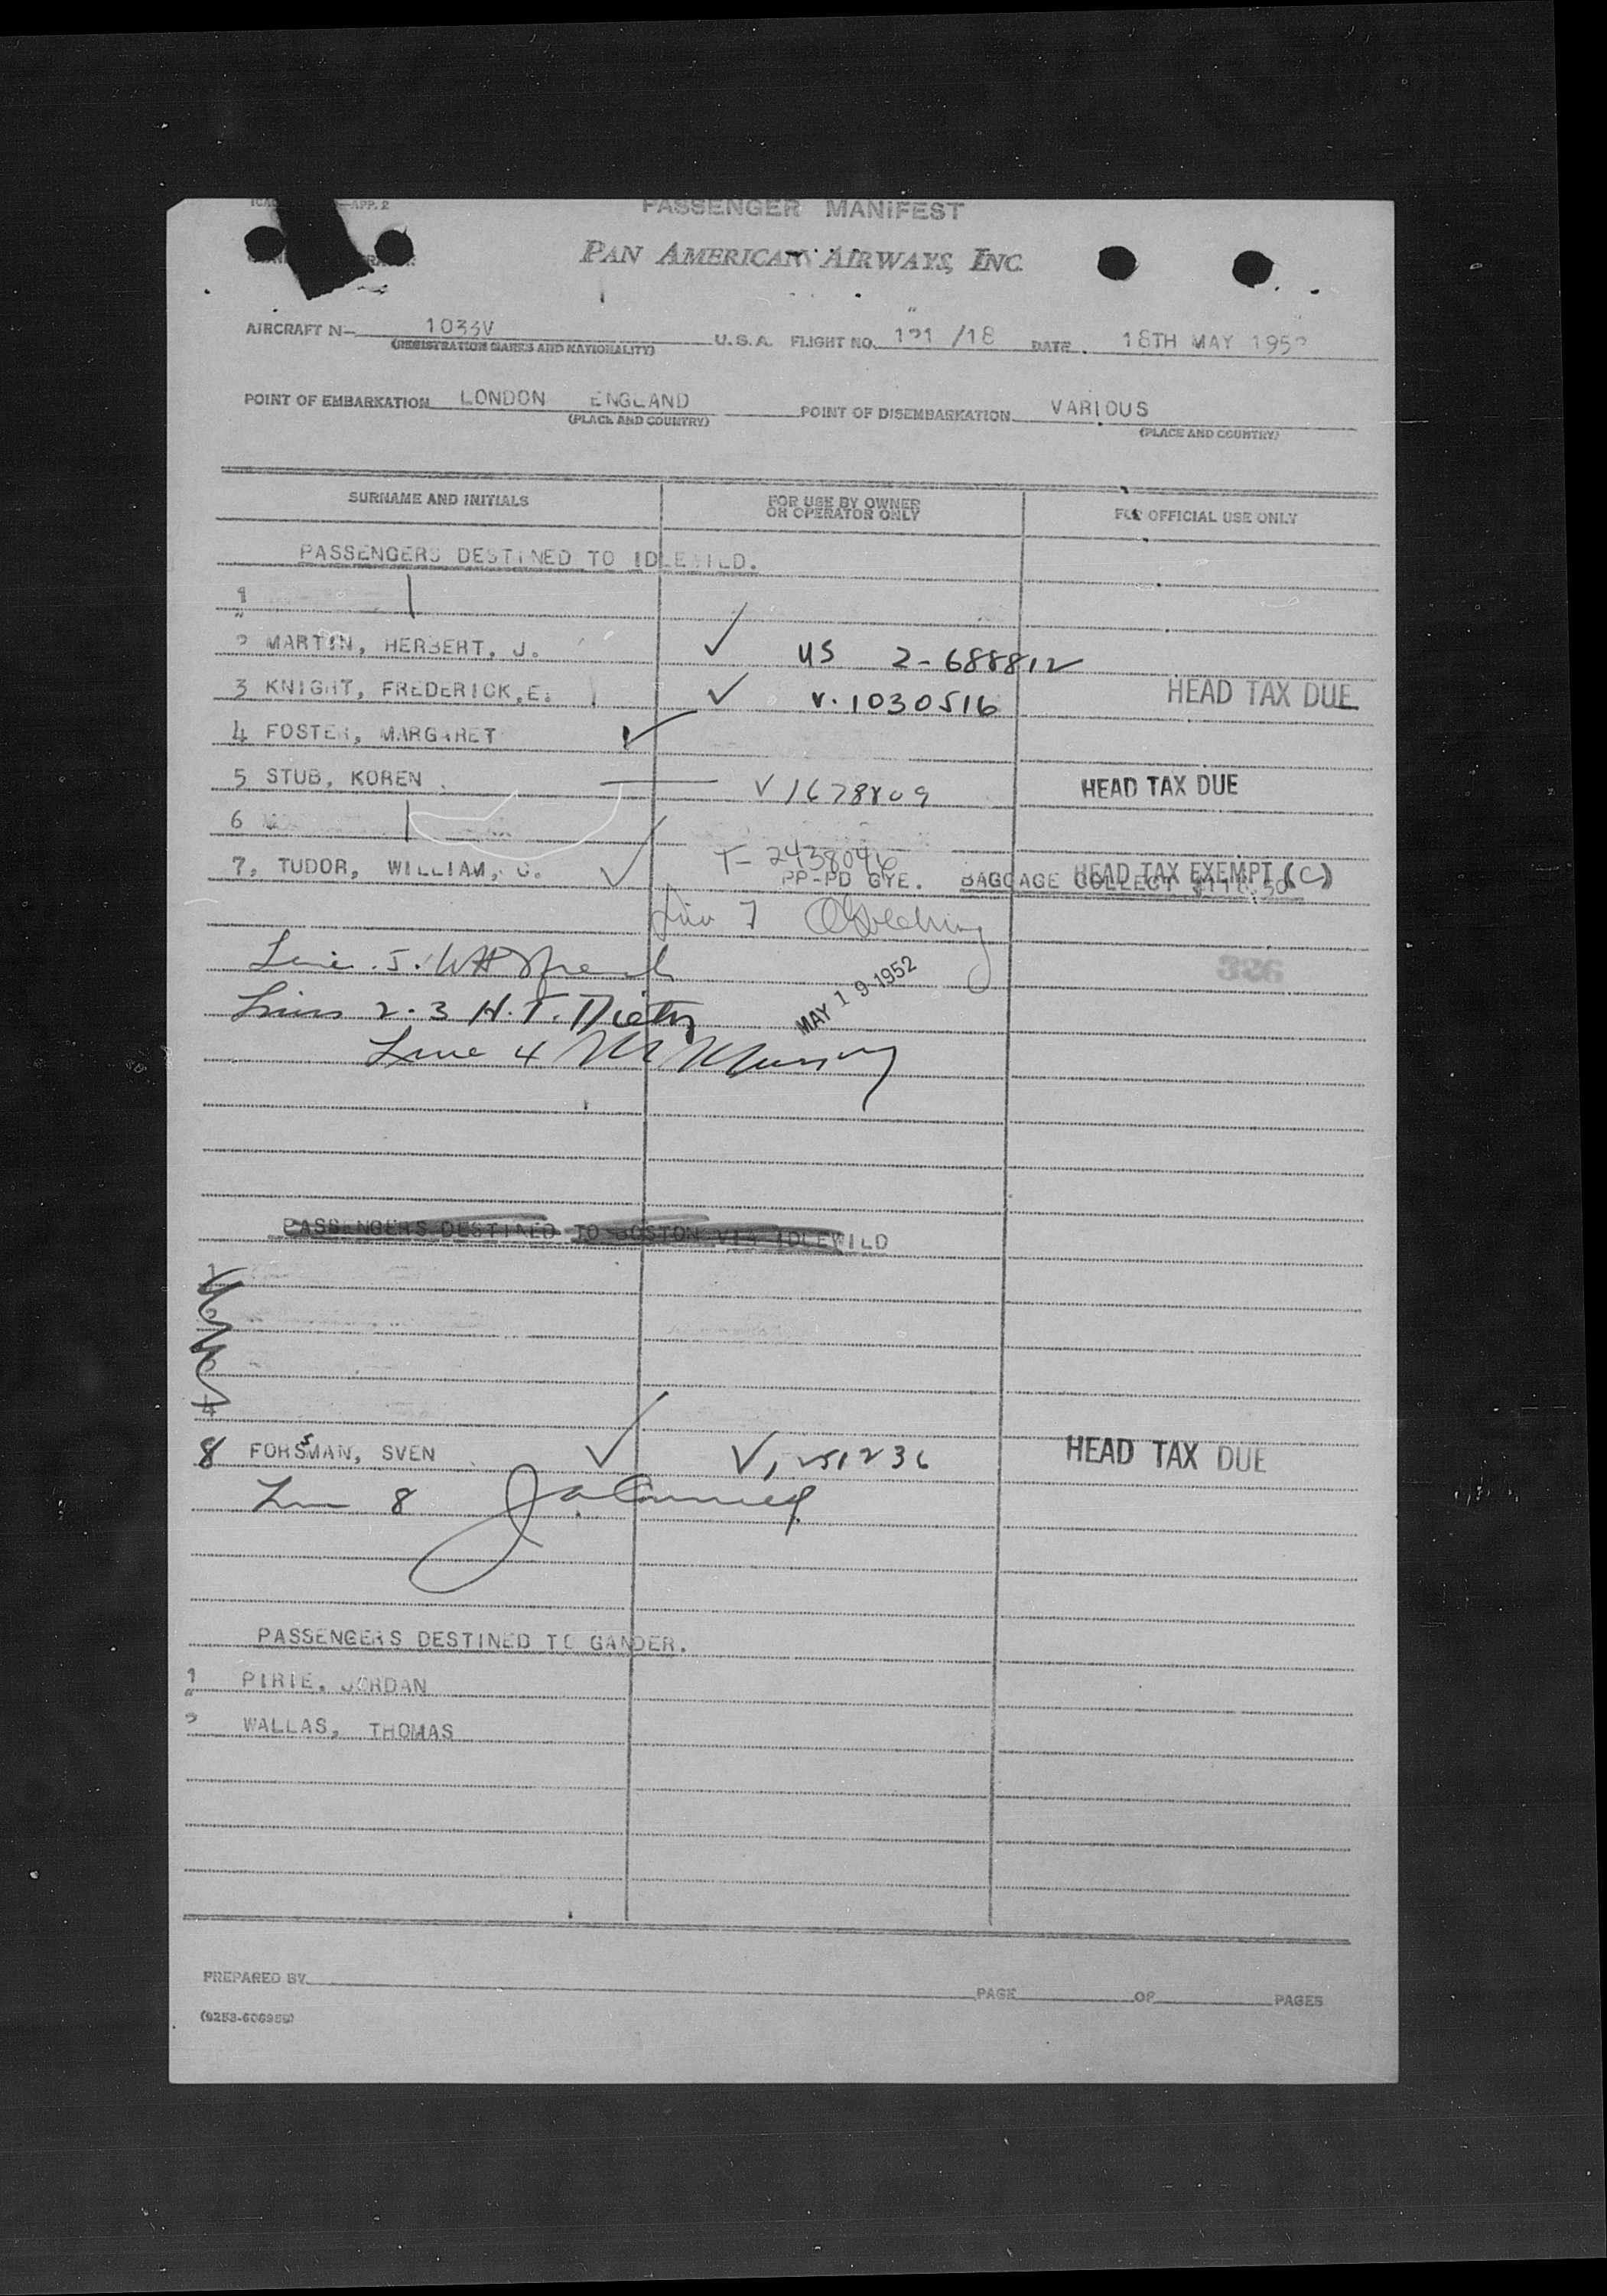 —APP. 2
PASSENGER MANIFEST
PAN AMERICAN AIRWAYS, INC.
AIRCRAFT N— 1033V U.S.A. FLIGHT NO. 121 /18 DATE 18TH MAY 1952
(REGISTRATION MARKS AND NATIONALITY)
POINT OF EMBARKATION LONDON ENGLAND POINT OF DISEMBARKATION VARIOUS
(PLACE AND COUNTRY) (PLACE AND COUNTRY)
SURNAME AND INITIALS FOR USE BY OWNER OR OPERATOR ONLY FOR OFFICIAL USE ONLY
PASSENGERS DESTINED TO IDLEWILD.
1
2 MARTIN, HERBERT, J. ✓ US 2-688812
3 KNIGHT, FREDERICK, E. ✓ V. 1030516 HEAD TAX DUE
4 FOSTER, MARGARET ✓
5 STUB, KOREN V 1678809 HEAD TAX DUE
6
7, TUDOR, WILLIAM, ✓ T- 2438046 HEAD TAX EXEMPT (C)
PP-PD GYE. BAGGAGE COLLECT
Line 7
Line 5.
326
Lines 2-3 H. T. Dietz
MAY 19 1952
Line 4
PASSENGERS DESTINED TO BOSTON VIA IDLEWILD
1
2
3
4
8 FORSMAN, SVEN ✓ HEAD TAX DUE
Line 8
PASSENGERS DESTINED TO GANDER.
1 PIRIE, JORDAN
2 WALLAS, THOMAS
PREPARED BY PAGE OF PAGES